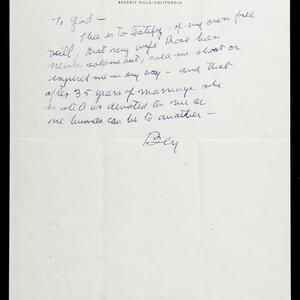 BEVERLY HILLS • CALIFORNIA
To God —
This is to testify, of my own free
will, that my wife Rose has
never sold me out, sold me short or
injured me in any way — and that
after 35 years of marriage she
is still as devoted to me as
one human can be to another —